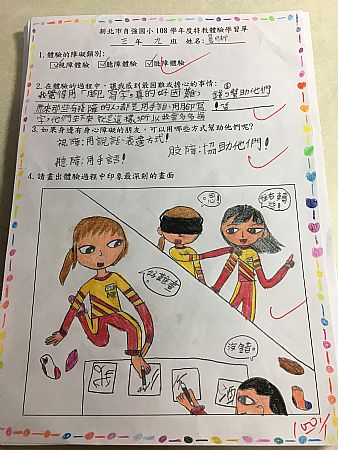 新北市自強國小108學年度特教體驗學習單
三年九班 姓名:
1. 體驗的障礙類別:
☑視障體驗 ☑聽障體驗 ☑肢障體驗
2. 在體驗過程中,讓我感到最困難或擔心的事情:
我覺得用「腳寫字」真的好困難,
原來那些有肢障的人都是用手語、用腳寫
字,他們
3. 如果身邊有身心障礙的朋友,可以用哪些方式幫助他們?
視障:用說話、表達方式!
聽障:用手語!
肢障:協助他們!
4. 請畫出體驗過程中印象最深刻的畫面
嗯!
好難畫
沒錯!
100